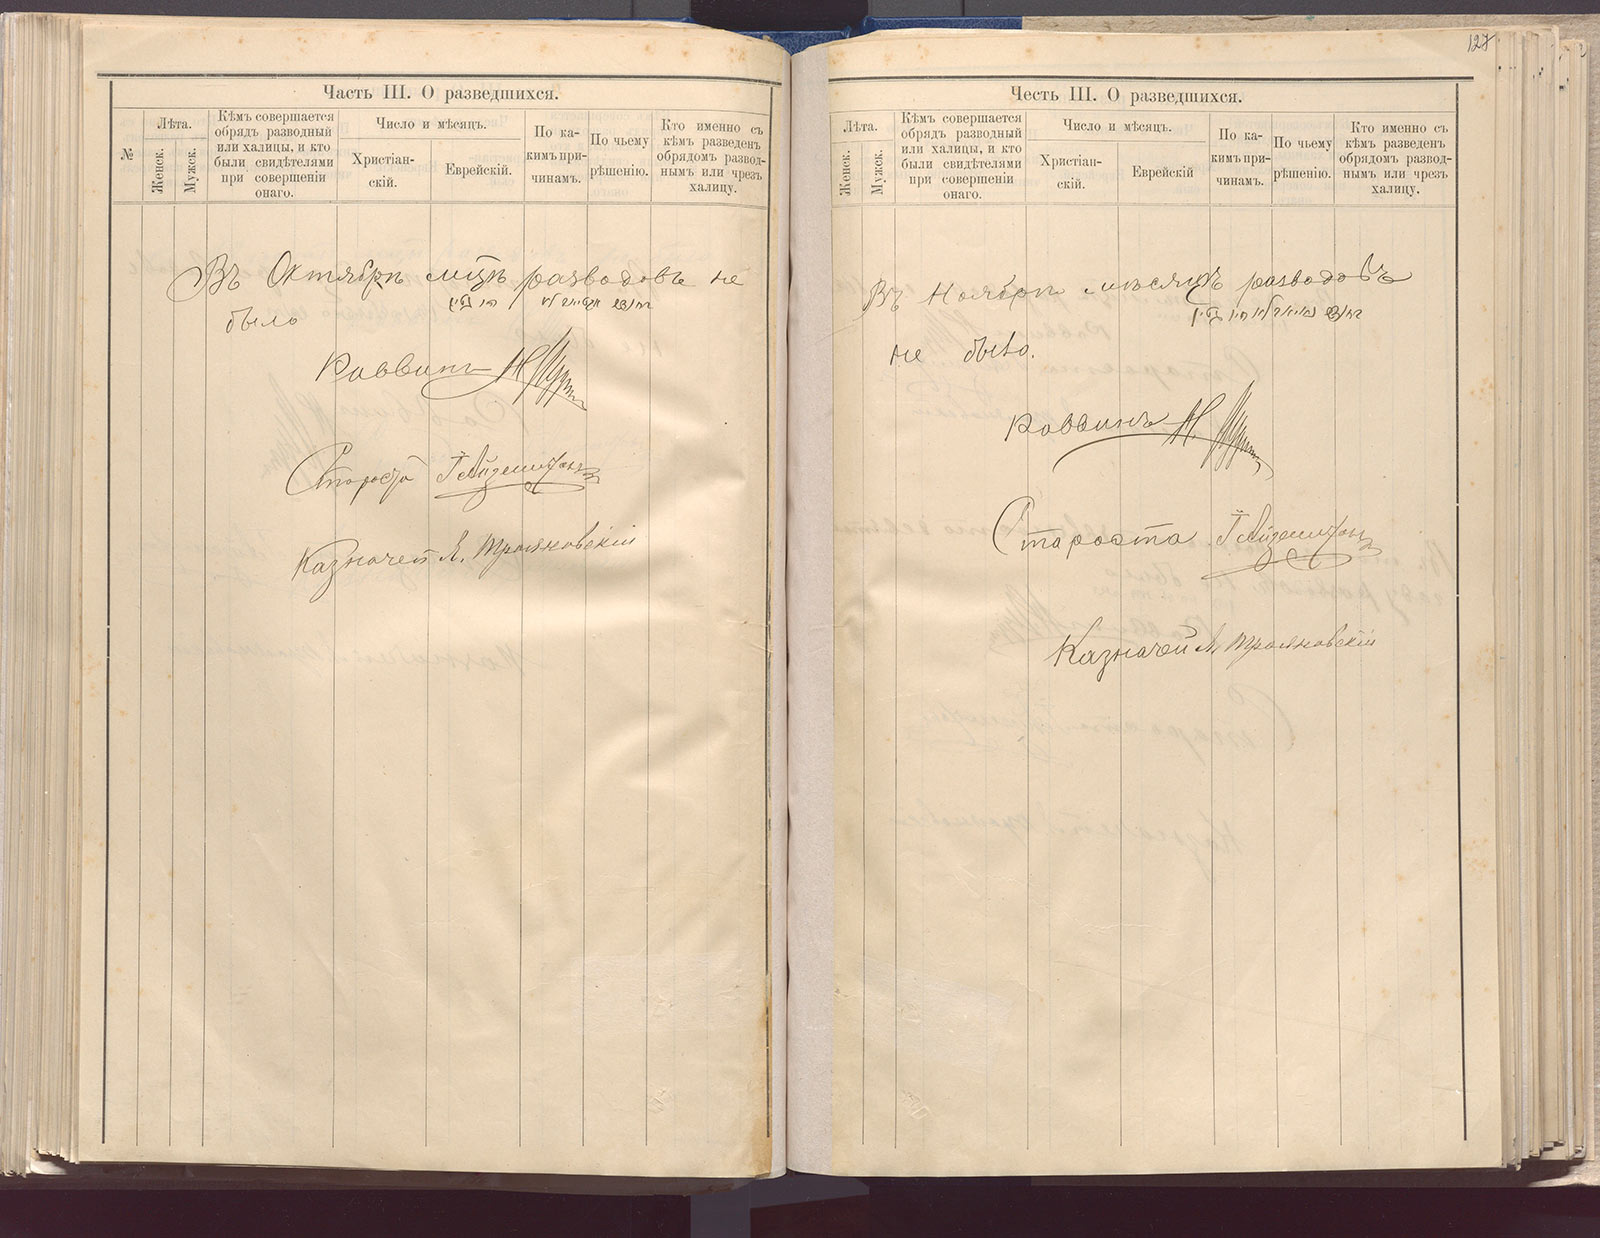 Часть III. О разведшихся.
№
Лѣта.
Женск.
Мужск.
Кѣмъ совершается
обрядъ разводный
или халицы, и кто
были свидѣтелями
при совершеніи
онаго.
Число и мѣсяцъ.
Христіан-
скій.
Еврейскій.
По ка-
кимъ при-
чинамъ.
По чьему
рѣшенію.
Кто именно съ
кѣмъ разведенъ
обрядомъ развод-
нымъ или чрезъ
халицу.
Въ Октябрѣ мцѣ разводовъ не
было
Раввинъ
Староста
Казначей Л. Трояновскій
127
Честь III. О разведшихся.
Лѣта.
Женск.
Мужск.
Кѣмъ совершается
обрядъ разводный
или халицы, и кто
были свидѣтелями
при совершеніи
онаго.
Число и мѣсяцъ.
Христіан-
скій.
Еврейскій
По ка-
кимъ при-
чинамъ.
По чьему
рѣшенію.
Кто именно съ
кѣмъ разведенъ
обрядомъ развод-
нымъ или чрезъ
халицу.
Въ Ноябрѣ мѣсяцѣ разводовъ
не было.
Раввинъ
Староста
Казначей Л. Трояновскій